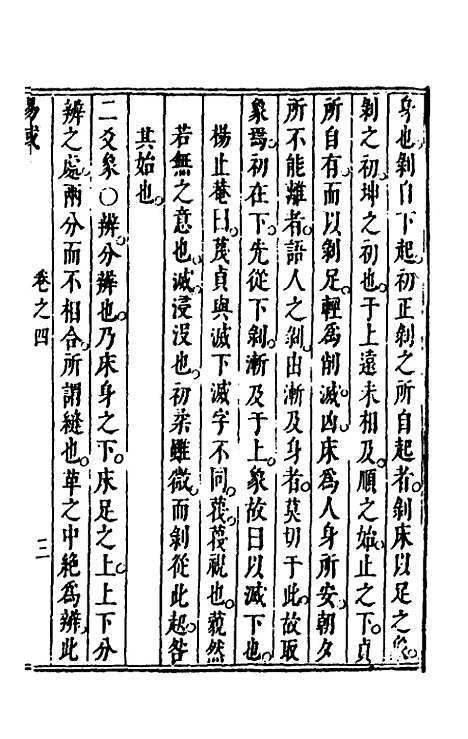 身也剝自下起初正剝之所自起者剝床以足之象
剝之初坤之初也于上遠未相及順之始止之下貞
所自有而以剝足輕為削滅凶床為人身所安朝夕
所不能離者語人之剝由漸及身者莫切于此故取
象焉初在下先從下剝漸及于上象故曰以滅下也
楊止菴曰蔑貞與滅下滅字不同蔑視也藐然
若無之意也滅浸沒也初柔雖微而剝從此起咎
其始也
二爻象○辨分辨也乃床身之下床足之上上下分
辨之處兩分而不相合所謂縫也草之中絶為辨此
易或
卷之四
三